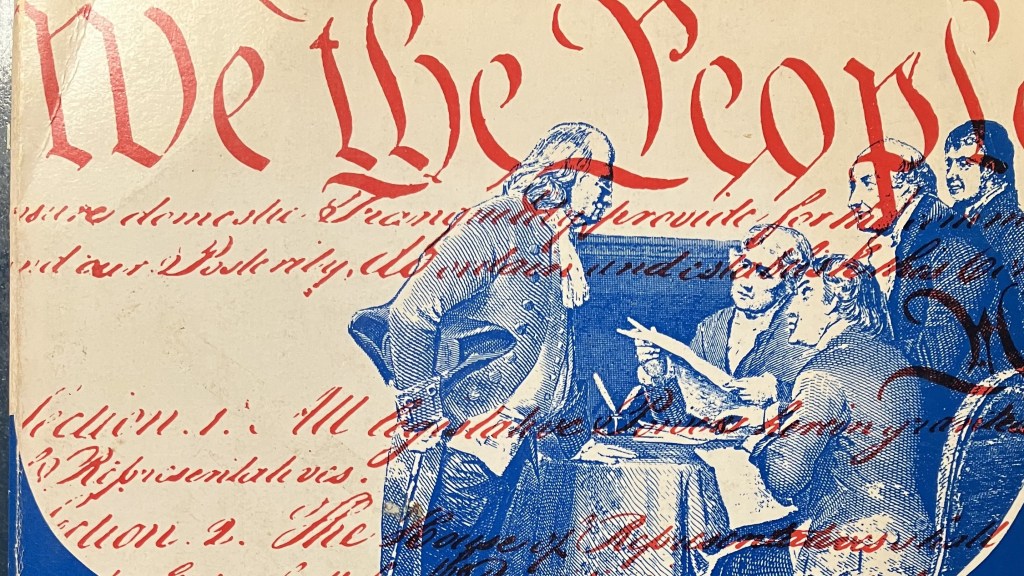 We the People
sure domestic Tranquility, provide for the
nd our Posterity, do ordain and establish this
Section. 1. All legislative Powers herein granted
Representatives.
ection. 2. The House of Representatives shall